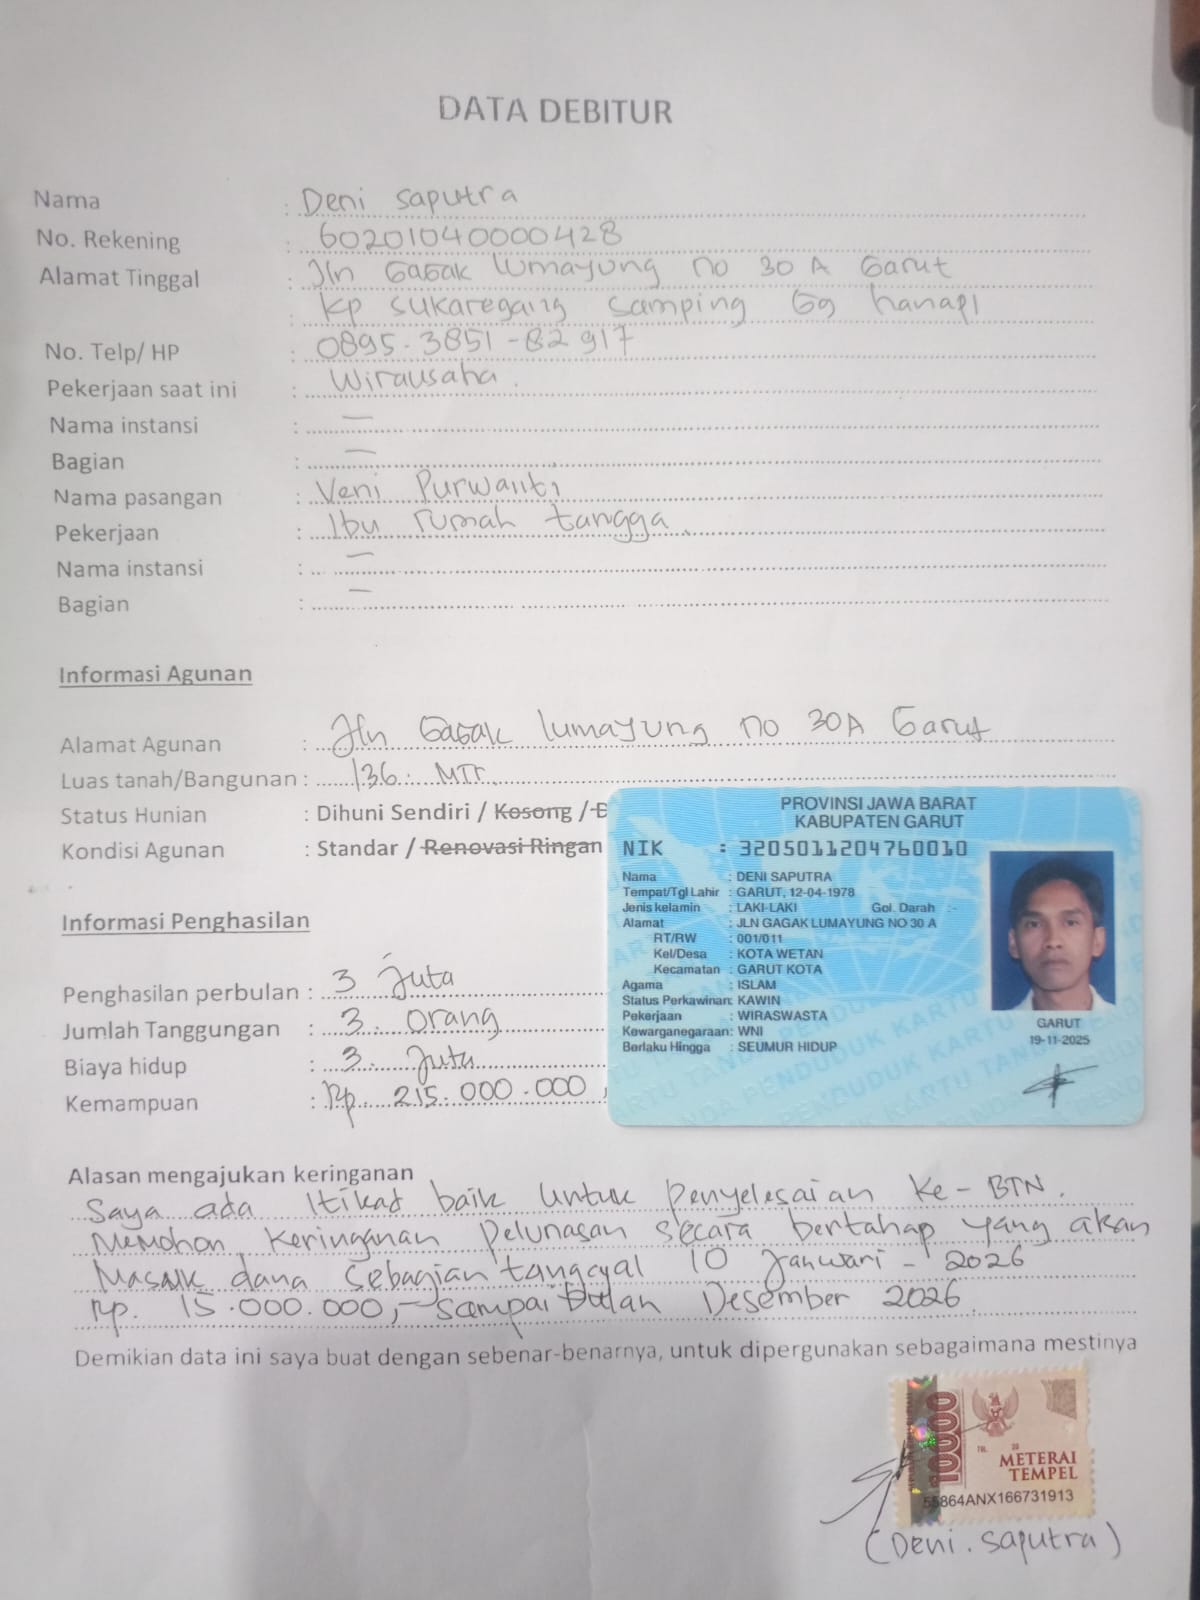 DATA DEBITUR
Nama : Deni Saputra
No. Rekening : 60201040000428
Alamat Tinggal : Jln Gagak lumayung no 30 A Garut
: kp sukaregang samping Gg hanapi
No. Telp/ HP : 0895-3851-82917
Pekerjaan saat ini : Wirausaha.
Nama instansi : —
Bagian : —
Nama pasangan : Veni Purwanti
Pekerjaan : Ibu rumah tangga.
Nama instansi : —
Bagian : —
Informasi Agunan
Alamat Agunan : Jln Gagak lumayung no 30A Garut
Luas tanah/Bangunan : 136 MTr
Status Hunian : Dihuni Sendiri / Kosong /
Kondisi Agunan : Standar / Renovasi Ringan
Informasi Penghasilan
Penghasilan perbulan : 3 Juta
Jumlah Tanggungan : 3 orang
Biaya hidup : 3 Juta
Kemampuan : Rp. 215.000.000
PROVINSI JAWA BARAT
KABUPATEN GARUT
NIK : 3205011204760010
Nama : DENI SAPUTRA
Tempat/Tgl Lahir : GARUT, 12-04-1978
Jenis kelamin : LAKI-LAKI Gol. Darah :-
Alamat : JLN GAGAK LUMAYUNG NO 30 A
RT/RW : 001/011
Kel/Desa : KOTA WETAN
Kecamatan : GARUT KOTA
Agama : ISLAM
Status Perkawinan: KAWIN
Pekerjaan : WIRASWASTA
Kewarganegaraan: WNI
Berlaku Hingga : SEUMUR HIDUP
GARUT
19-11-2025
Alasan mengajukan keringanan
Saya ada Itikad baik untuk penyelesaian Ke-BTN.
Memohon keringanan pelunasan secara bertahap yang akan
Masuk dana sebagian tanggal 10 Januari - 2026
Rp. 15.000.000,- sampai bulan Desember 2026.
Demikian data ini saya buat dengan sebenar-benarnya, untuk dipergunakan sebagaimana mestinya
10000
TGL. 20
METERAI
TEMPEL
55864ANX166731913
(Deni. Saputra)